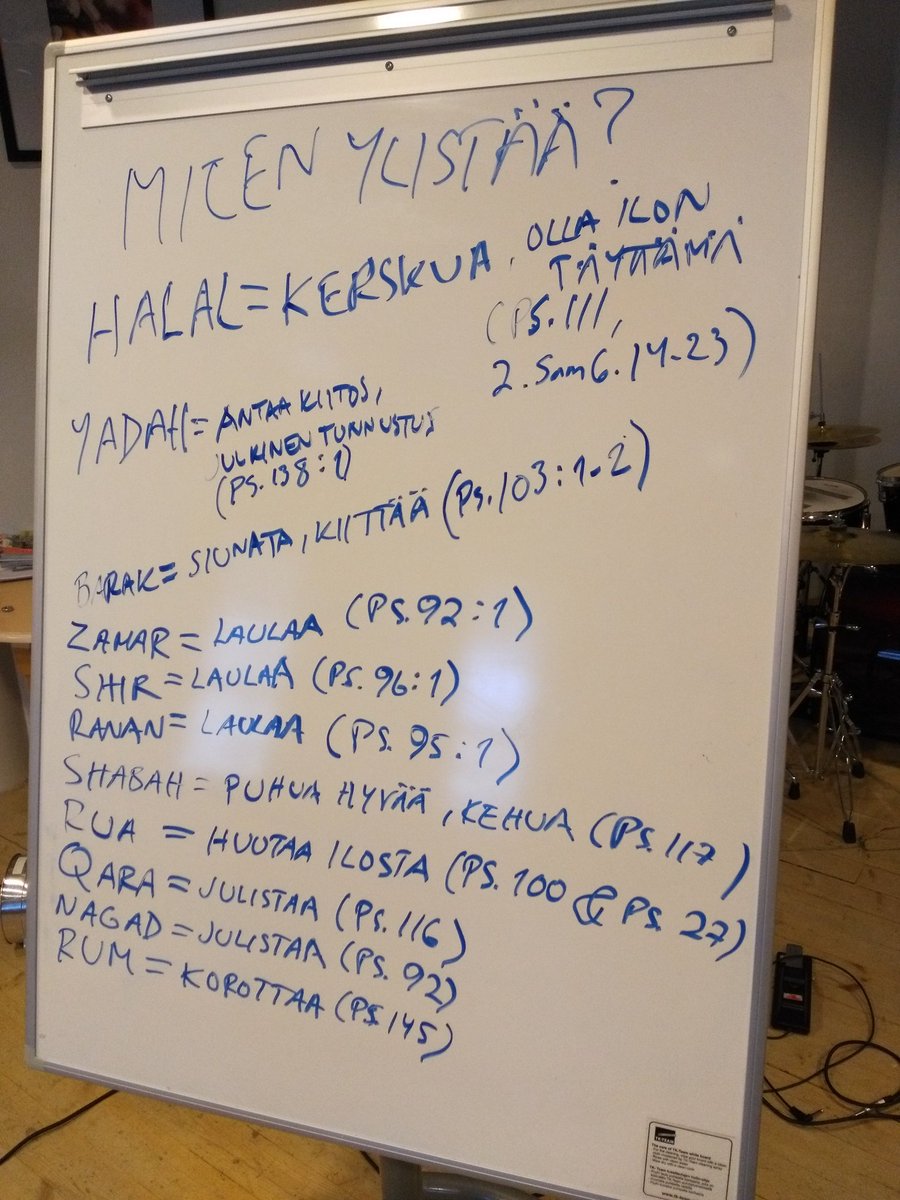 MITEN YLISTÄÄ?
HALAL = KERSKUA, OLLA ILON
TÄYTTÄMÄ
(PS. 111,
2. Sam 6. 14-23)
YADAH = ANTAA KIITOS,
JULKINEN TUNNUSTUS
(PS. 138:1)
BARAK = SIUNATA, KIITTÄÄ (PS. 103:1-2)
ZAMAR = LAULAA (PS. 92:1)
SHIR = LAULAA (PS. 96:1)
RANAN = LAULAA (PS. 95:1)
SHABAH = PUHUA HYVÄÄ, KEHUA (PS. 117)
RUA = HUUTAA ILOSTA (PS. 100 & PS. 27)
QARA = JULISTAA (PS. 116)
NAGAD = JULISTAA (PS. 92)
RUM = KOROTTAA (PS. 145)